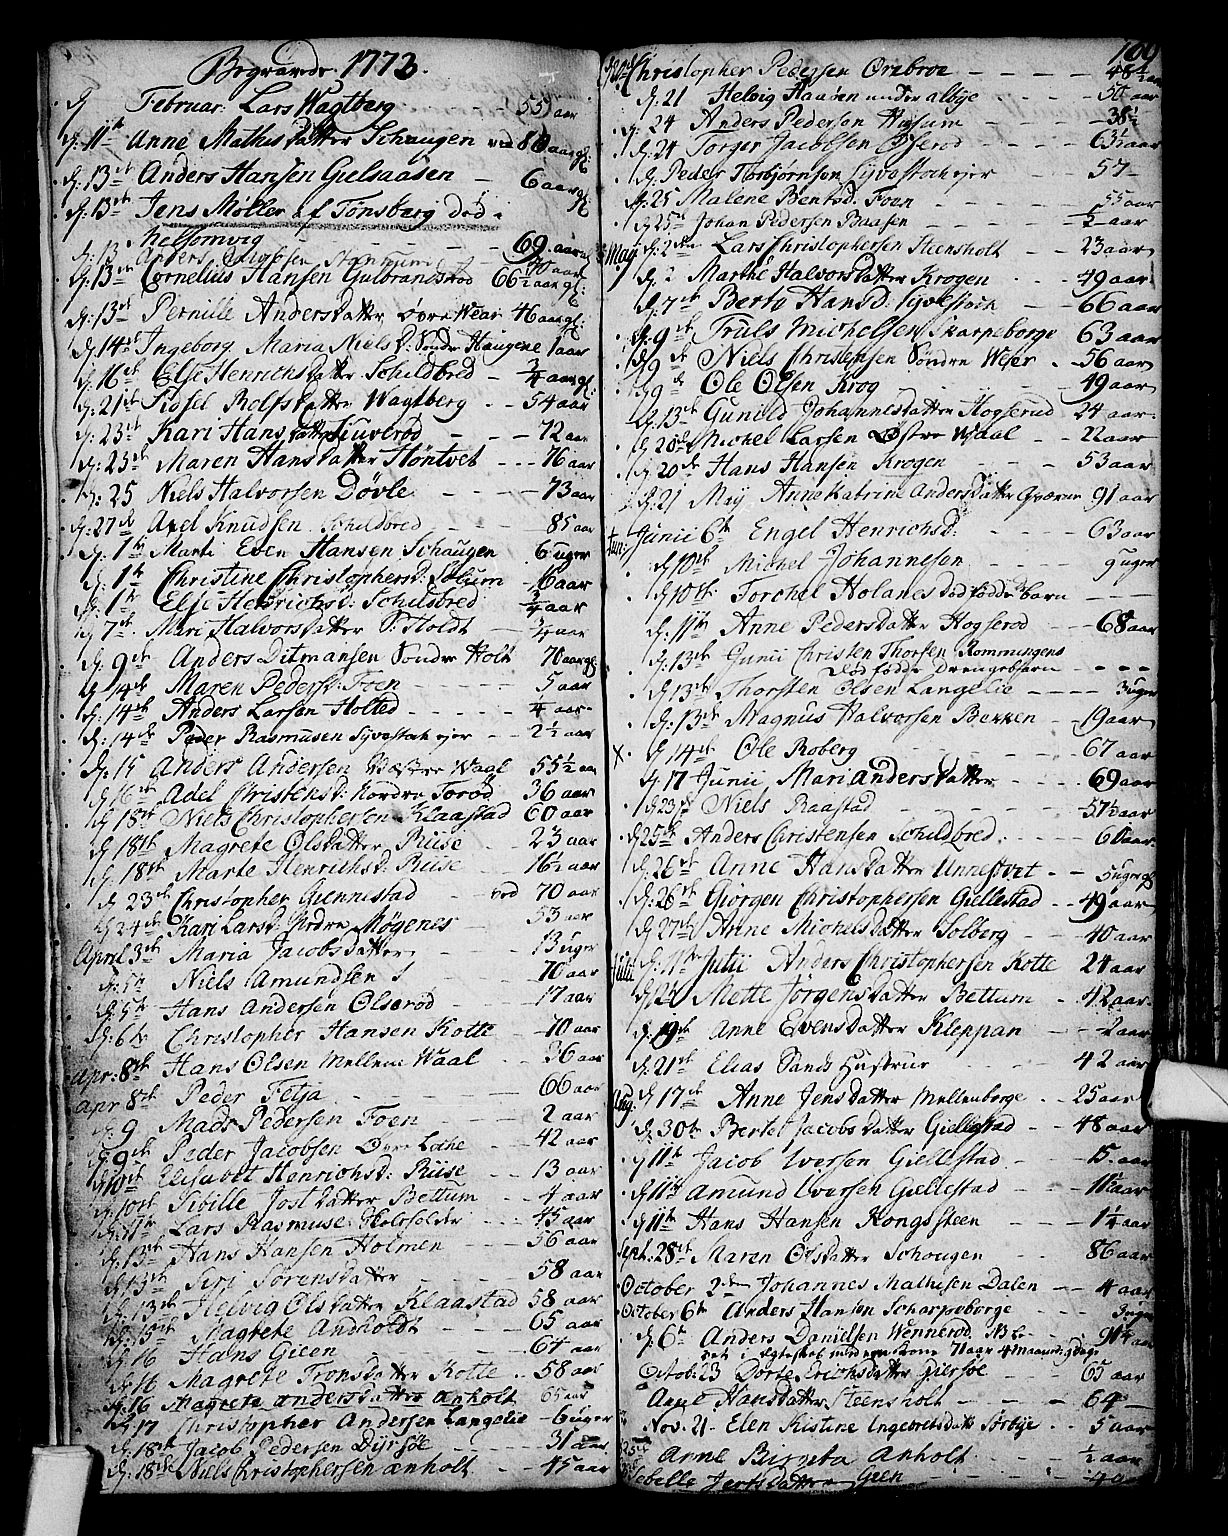 Begravede 1773.
d. 9 Februar: Lars Wagtberg - - - 55 aar
d. 11te Anne Mathisdatter Schaugen ved 80 aar gl:
d. 13de Anders Hansen Gielsaasen - - 6 aar gl:
d. 13de Jens Møller af Tønsberg død i
Melsomvig - - - 69 aar
d. 13 Anders - - - 70 aar
d. 13de Cornelius Hansen Gulbrandsrød 66½ aar gl:
d. 13de Pernille Andersdatter øvre Wear 46 aar gl:
d. 14de Ingeborg Maria Niels D: Søndre Haugene 1 aar
d. 16de Else Henrichsdatter Schildbred - ¾ aar gl:
d. 21de Sidsel Rolfsdatter Wagtberg - - 54 aar
d. 23de Kari Hansdatter - - - 72 aar
d. 23de Maren Hansdatter Høntvet - - - 76 aar
d. 25 Niels Halvorsen Døvle - - - 73 aar
d. 27de Axel Knudsen Schildbred - - 85 aar
d. 1te Marti Even Hansen Schaugen 6 uger
d. 1te Christine Christophersd: Solum - 6 aar
d. 1te Else Henrichsd: Schilsbred - ¾ aar
d. 7de Mari Halvorsdatter S: Holdt - ¼ aar
d. 9de Anders Ditmansen Søndre Holt 70 aar gl
d. 14de Maren Pedersd: Foen - - 5 aar
d. 14de Anders Larsen Holted - - - 4 aar
d. 14de Peder Rasmusen Sivestochejer - - 2½ aar
d. 15 Anders Andersen Westre Waal 55½ aar
d. 16de Adel Christensd: Nordre Torød 36 aar
d. 18de Niels Christophersen Klaastad 60 aar
d. 18de Magrete Olsdatter Riise - - 23 aar
d. 18de Marte Henrichsd: Riise - - 16½ aar
d. 23de Christopher Giennestad - ved 70 aar
d. 24de Kari Larsd: Nordre Møgenes - 53 aar
April 3de Maria Jacobsdatter - - 13 uger
d. 5te Niels Amundsen - - - 70 aar
d. 5te Hans Andersen Olserød - - - 17 aar
d. 6te Christopher Hansen Kotte - - 70 aar
Apr: 8de Hans Olsen Mellem Waal - - 36 aar
Apr 8de Peder Felja - - - 66 aar
d. 9 Mads Pedersen Foen - - - 2 aar
d. 9de Peder Jacobsen Øvre Lohe - - 42 aar
d. 10de Elisabet Henrichsd: Riise - - 13 aar
d. 10de Sibille Jostdatter Bettum - - 4 aar
d. 11te Lars Rasmuse - - - 45 aar
d. 13de Hans Hansen Holmen - - - 56 aar
d. 13de Siri Sørensdatter - - - 58 aar
d. 13de Helvig Olsdatter Klaastad 58 aar
d. 15de Magrete Andholdt - - - 65 aar
d. 16 Hans Gieen - - - 64 -
d. 16 Magrete Tronsdatter Kotte - - 58 aar
d. 16 Magrete andersdatter anholt - 65 aar
d. 17 Christopher Andersen Langelie - 6 uger
d. 18de Jacob Pedersen Dyrsøe - - - 31 aar
d. 18de Niels Christophersen anholt - - 45 aar
Christopher Pedersen Ørebroe - - - 48½ aar
d. 21 Helvig Hansen - - - 50 aar
d. 24 Anders Pedersen Husum - - - 38½
d. 24 Torger Jacobsen - - - 63½ aar
d. Peder Torbjørnsen Syvestochejer - - 57 -
d. 25 Malene Bentsd: Foen - - - 55 aar
d. 25de Johan Pedersen Baasen - - ½ aar
May d. 2den Lars Christophersen Steensholt - - 23 aar
d. 2 Marthe Halvorsdatter Krogen - - 49 aar
d. 7de Berto Hansd: - - 66 aar
d. 9de Truls Michelsen Skarpeborge 63 aar
d. 9de Niels Christensen Søndre Weier - 56 aar
d. 9de Ole Olsen Krog - - - 49 aar
d. 13de Gunild Johannesdatter Hogserud - 24 aar
d. 20de Michel Larsen Østre Waal - 22 aar
d. 20de Hans Hansen Krogen - - - 53 aar
d. 21 May Anne Katrine Andersdatter 91 aar
Juni: Junii 6te Engel Henrichsd: - - - 63 aar
d. 10de Michel Johannesen - - 9 uger
d. 10de Torchel Holanes dødfødde barn - - -
d. 11te Anne Pedersdatter Hogserød - - 68 aar
d. 13de Junii Christen Thorsen Rommingens
død fødde Drengebarn - - -
d. 13de Thorsten Olsen Langelie - - - 3 uger
d. 13de Magnus Halvorsen Bekken - - 19 aar
x d. 14de Ole Roberg - - - 67 aar
d. 17 Junii Mari Andersdatter - - 69 aar
d. 23de Niels Raastad - - - 57½ aar
d. 25de Anders Christensen Schildbred - - 60 aar
d. 26de Anne Hansdatter Unneføvet - - 5 uger gl
d. 26de Giørgen Christophersen Giellestad - - 49 aar
d. 27de Anne Michelsdatter Solberg - - 40 aar
Julii d. 11te Julii Anders Christophersen Kotte 24 aar
d. 12te Mette Jørgensdatter Bettum - 42 aar
d. 19de Anne Evensdatter Kleppan - - 2 aar
d. 21de Elias Sands Hustrue - - - 42 aar
Aug: d. 17de Anne Jensdatter Mellenborge - - 25 aar
d. 30te Bertel Jacobsdatter Giellestad - - 48 aar
d. 11te Jacob Iversen Giellestad - - 15 aar
d. 11te Amund Iversen Giellestad - - 11½ aar
d. 11te Hans Hansen Kongssteen - - 1¼ aar
Sept: 28de Maren Olsdatter Schougen - - 86 aar
October 2den Johannes Mathisen Dalen - 4 aar
October 6te Anders Hansen Scharpeborge - - 3 uger
d. 6te Anders Danielsen Wennerød. NB - - 91¼ aar
vet i Egteskab med een Kone 71 aar 4 maaned: 9 dage
Octob: 23 Dorte Erichsdatter Diersøe - - 65 aar
Anne Hansdatter Steensholt - - 64 -
Nov. 21 - Elen Kistine Ingebretsdatt Sørbye - - 5 aar
Anne Birgeta Anholt - - - ½ aar
Sebelle Jensdatter Geen - - - 40